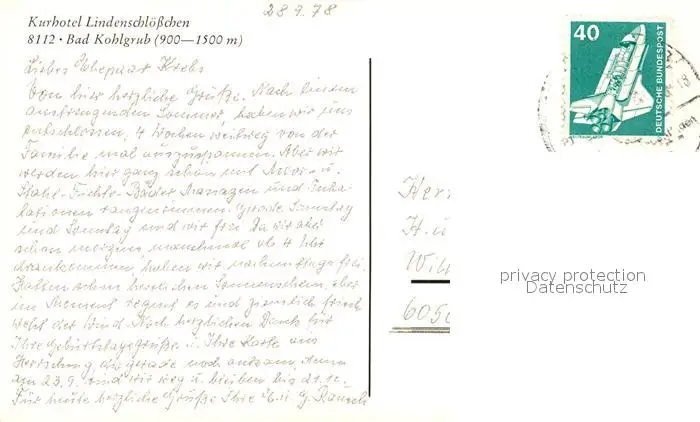 28.9.78
Kurhotel Lindenschlößchen
8112 · Bad Kohlgrub (900—1500 m)
Liebes Ehepaar Krebs
Von hier herzliche Grüße. Nach einem
anstrengenden Sommer, haben wir uns
entschlossen, 4 Wochen weitweg von der
Familie mal auszuspannen. Aber wir
werden hier ganz schön mit Moor- u.
Stahl- Fichte- Bäder Massagen und Inha-
lationen rangenommen. Gerade Samstag
und Sonntag sind wir frei. Da wir aber
schon morgens manchmal ab 4 Uhr
drankommen, haben wir nachmittags frei.
Hatten schon herrlichen Sonnenschein, aber
im Moment regnet es und ziemlich frisch
weht der Wind. Noch herzlichen Dank für
Ihre Geburtstagsgrüße u. Ihre Karte aus
Herrsching, die gerade noch ankam, denn
am 23.9. sind wir weg u. bleiben bis 21.10.
Für heute herzliche Grüße Ihre H. u. G.
40
DEUTSCHE BUNDESPOST
H. u
6050
privacy protection
Datenschutz